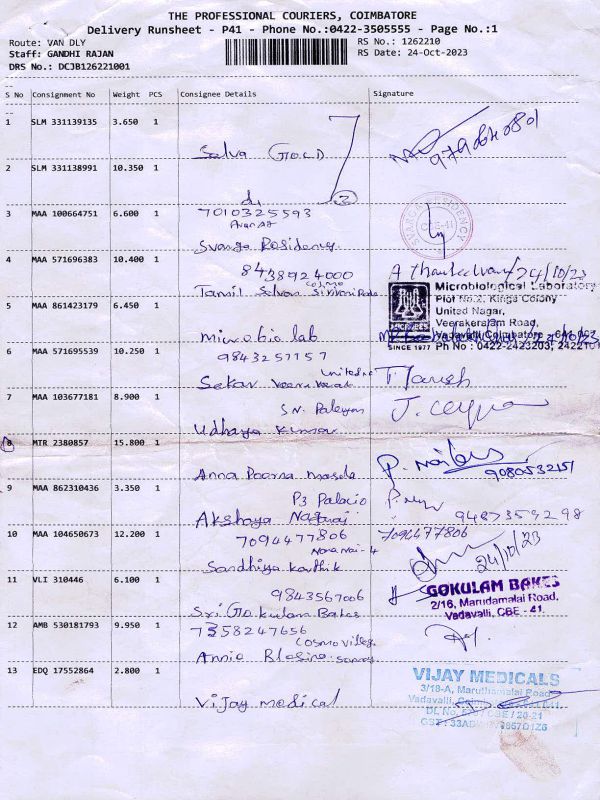 THE PROFESSIONAL COURIERS, COIMBATORE
Delivery Runsheet - P41 - Phone No.:0422-3505555 - Page No.:1
Route: VAN DLY
RS No.: 1262210
Staff: GANDHI RAJAN
RS Date: 24-Oct-2023
DRS No.: DCJB126221001
S No Consignment No Weight PCS Consignee Details Signature
1 SLM 331139135 3.650 1
Selva GOLD
9790040801
2 SLM 331138991 10.350 1
3 MAA 100664751 6.600 1
7010325593
Svarga Residency
4 MAA 571696383 10.400 1
8438924000
24/10/23
Tamil Selvan
5 MAA 861423179 6.450 1
Microbiological Laboratory
Plot No.2, Kings Colony
United Nagar,
Veerakeralam Road,
SINCE 1977 Ph No : 0422-2423203,
micro bio lab
6 MAA 571695539 10.250 1
9843257157
Sekar
7 MAA 103677181 8.900 1
Udhaya Kumar
8 MTR 2380857 15.800 1
Anna Poorna masala
9080532151
9 MAA 862310436 3.350 1
P3 Palacio
Akshaya
9487359298
10 MAA 104650673 12.200 1
7094477806
7094477806
Sandhiya Karthik
24/10/23
11 VLI 310446 6.100 1
9843567006
Sri Gokulam Bakes
GOKULAM BAKES
2/16, Marudamalai Road,
Vadavalli, CBE - 41.
12 AMB 530181793 9.950 1
7358247656
Annie
13 EDQ 17552864 2.800 1
Vijay medical
VIJAY MEDICALS
3/18-A, Maruthamalai Road
Vadavalli,